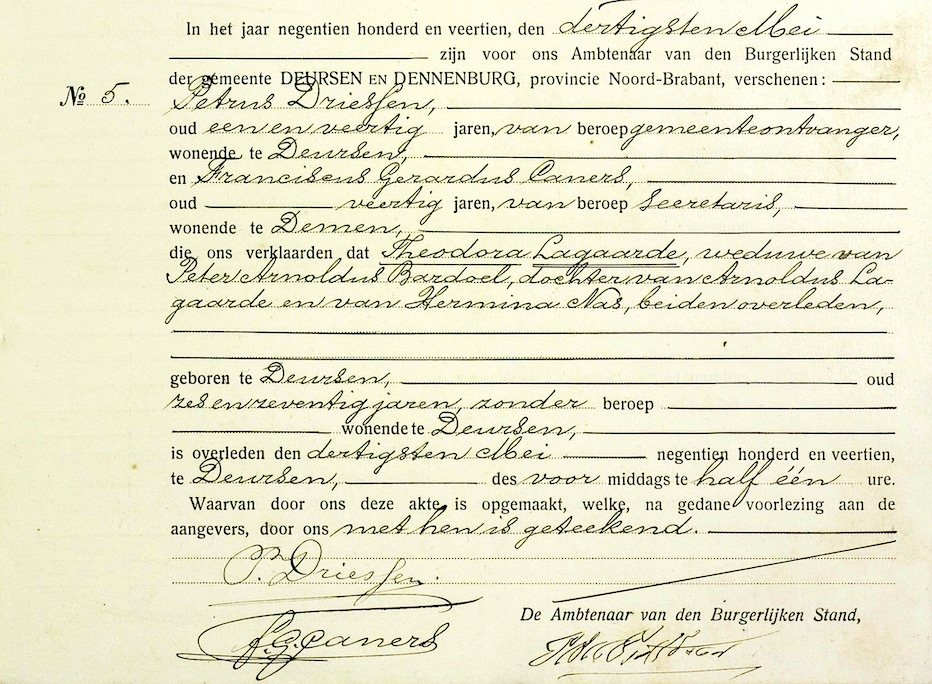 In het jaar negentien honderd en veertien, den dertigsten Mei
zijn voor ons Ambtenaar van den Burgerlijken Stand
der gemeente DEURSEN EN DENNENBURG, provincie Noord-Brabant, verschenen:
№ 5. Petrus Driessen,
oud een en veertig jaren, van beroep gemeenteontvanger,
wonende te Deursen,
en Franciscus Gerardus Caners,
oud veertig jaren, van beroep Secretaris,
wonende te Demen,
die ons verklaarden dat Theodora Lagaarde, weduwe van
Peter Arnoldus Bardoel, dochter van Arnoldus La-
gaarde en van Hermina Nas, beiden overleden,
geboren te Deursen, oud
zes en zeventig jaren, zonder beroep
wonende te Deursen,
is overleden den dertigsten Mei negentien honderd en veertien,
te Deursen, des voor middags te half één ure.
Waarvan door ons deze akte is opgemaakt, welke, na gedane voorlezing aan de
aangevers, door ons met hen is geteekend.
P. Driessen.
De Ambtenaar van den Burgerlijken Stand,
F.G. Caners